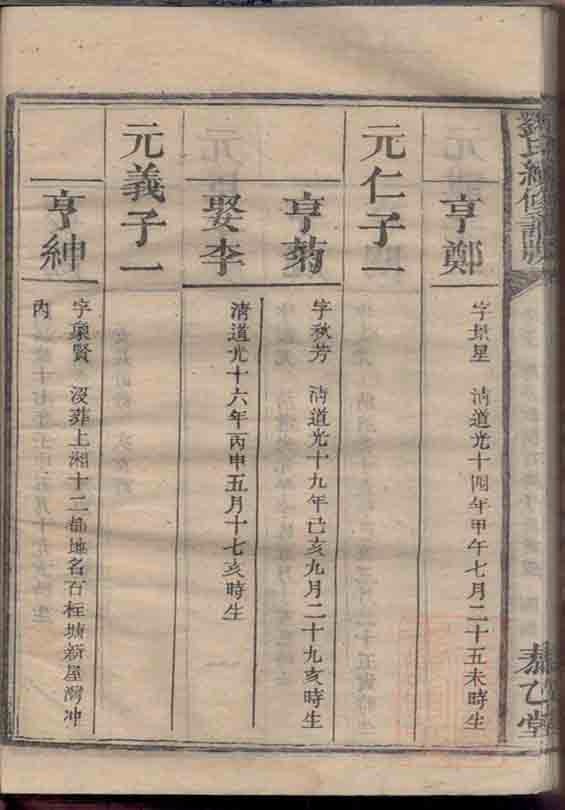 劉氏續修譜牒
泰乙堂
亨鄭
字景星　清道光十四年甲午七月二十五未時生
元仁子一
亨菊
字秋芳　清道光十九年己亥九月二十九亥時生
娶李
清道光十六年丙申五月十七亥時生
元義子一
亨紳
字集賢　沒葬上湘十二都地名石柱塘新屋灣冲
內